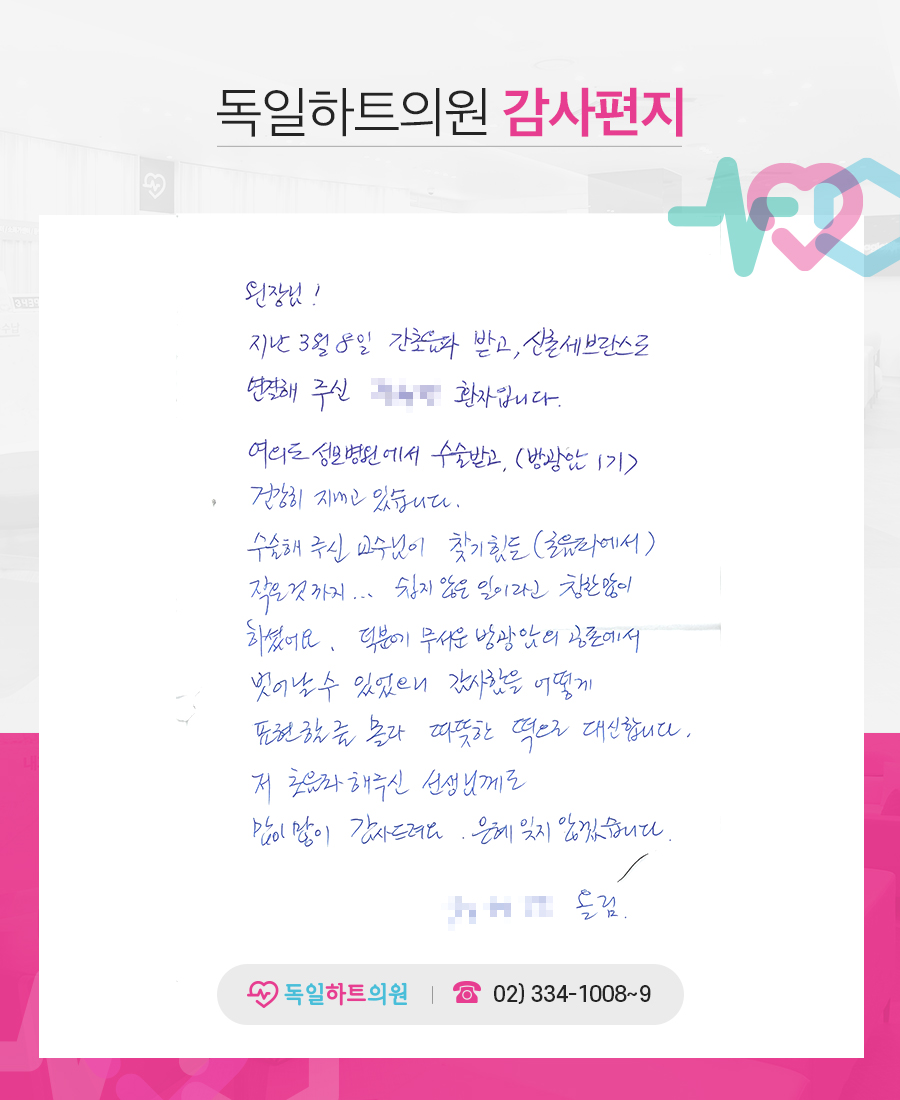 독일하트의원 감사편지
원장님!
지난 3월 8일 간초음파 받고, 신촌세브란스로
연결해 주신 환자입니다.
여의도 성모병원에서 수술받고, (방광암 1기)
건강히 지내고 있습니다.
수술해 주신 교수님이 찾기 힘든 (초음파에서)
작은것 까지... 쉽지 않은 일이라고 칭찬 많이
하셨어요. 덕분에 무서운 방광암의 공포에서
벗어날 수 있었으니 감사함을 어떻게
표현할 줄 몰라 따뜻한 떡으로 대신합니다.
저 초음파 해주신 선생님께도
많이 많이 감사드려요. 은혜 잊지 않겠습니다.
올림.
독일하트의원 | 02) 334-1008~9